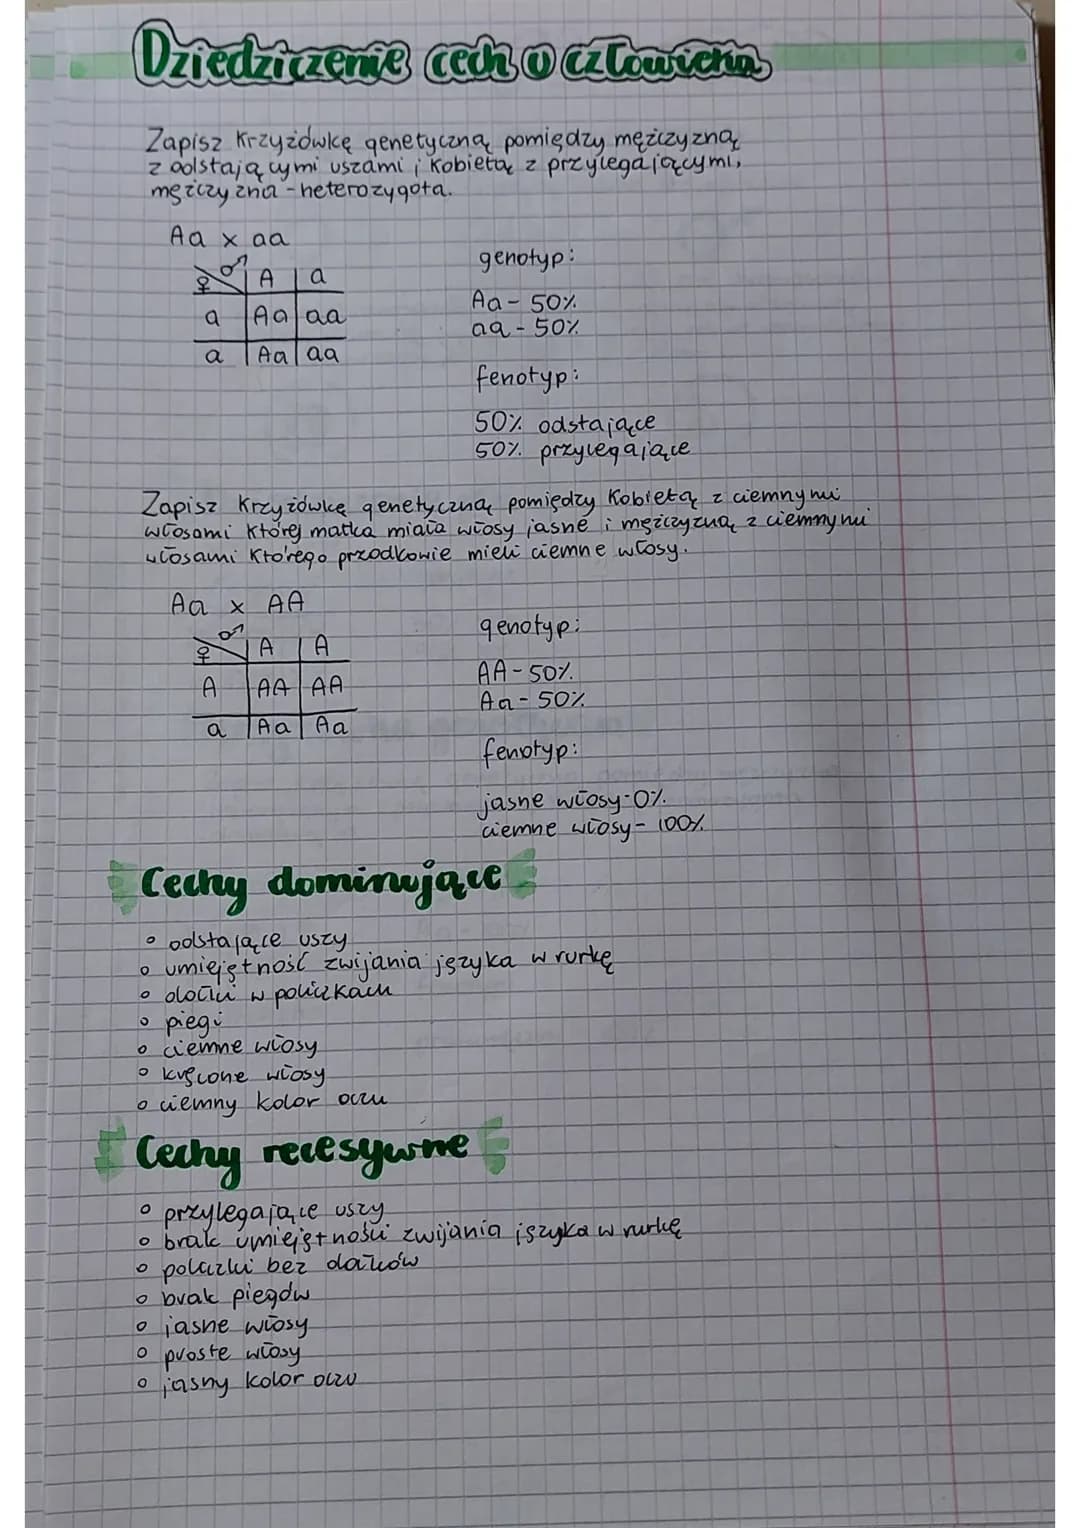 Dziedziczenie cech u człowieka
Zapisz krzyżówkę genetyczną pomiędzy mężczyzną
z odstającymi uszami i kobietą z przylegającymi,
mężczyzna - heterozygota.
Aa x aa
♀ ♂ A a
a Aa aa
a Aa aa
genotyp:
Aa - 50%
aa - 50%
fenotyp:
50% odstające
50% przylegające
Zapisz krzyżówkę genetyczną pomiędzy kobietą z ciemnymi
włosami której matka miała włosy jasne i mężczyzną z ciemnymi
włosami którego przodkowie mieli ciemne włosy.
Aa x AA
♀ ♂ A A
A AA AA
a Aa Aa
genotyp:
AA - 50%
Aa - 50%
fenotyp:
jasne włosy - 0%
ciemne włosy - 100%
Cechy dominujące
◦ odstające uszy
◦ umiejętność zwijania języka w rurkę
◦ dołki w policzkach
◦ piegi
◦ ciemne włosy
◦ kręcone włosy
◦ ciemny kolor oczu
Cechy recesywne
◦ przylegające uszy
◦ brak umiejętności zwijania języka w rurkę
◦ policzki bez dołków
◦ brak piegów
◦ jasne włosy
◦ proste włosy
◦ jasny kolor oczu